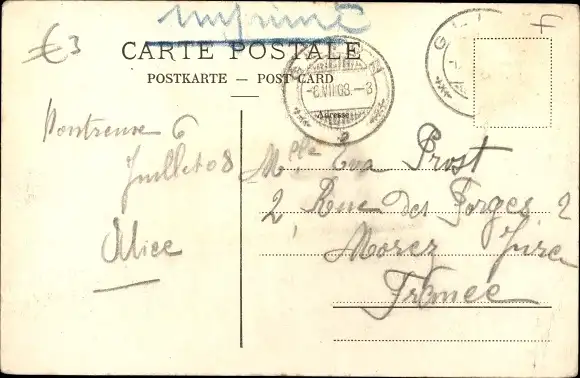 imprimé
€3
F
CARTE POSTALE
POSTKARTE — POST CARD
-6.VII.08.-3
Adresse
GL
Montreux 6
Juillet 08
Alice
Mlle Eva Prost
2, Rue des Forges, 2
Morez Jura
France